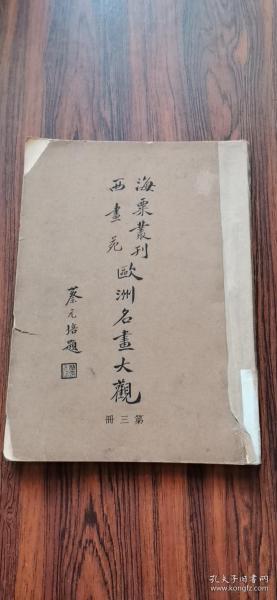 海粟叢刊
西畫苑
歐洲名畫大觀
蔡元培題
冊三第
孔夫子旧书网